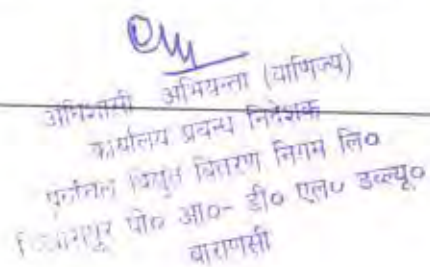 अधिशासी अभियन्ता (वाणिज्य)
कार्यालय प्रबन्ध निदेशक
पूर्वांचल विद्युत वितरण निगम लि०
पो० आ०- डी० एल० डब्ल्यू०
वाराणसी